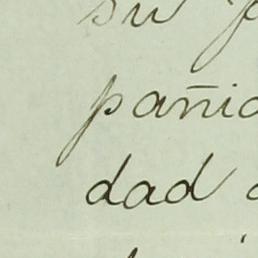 su
pañia
dad